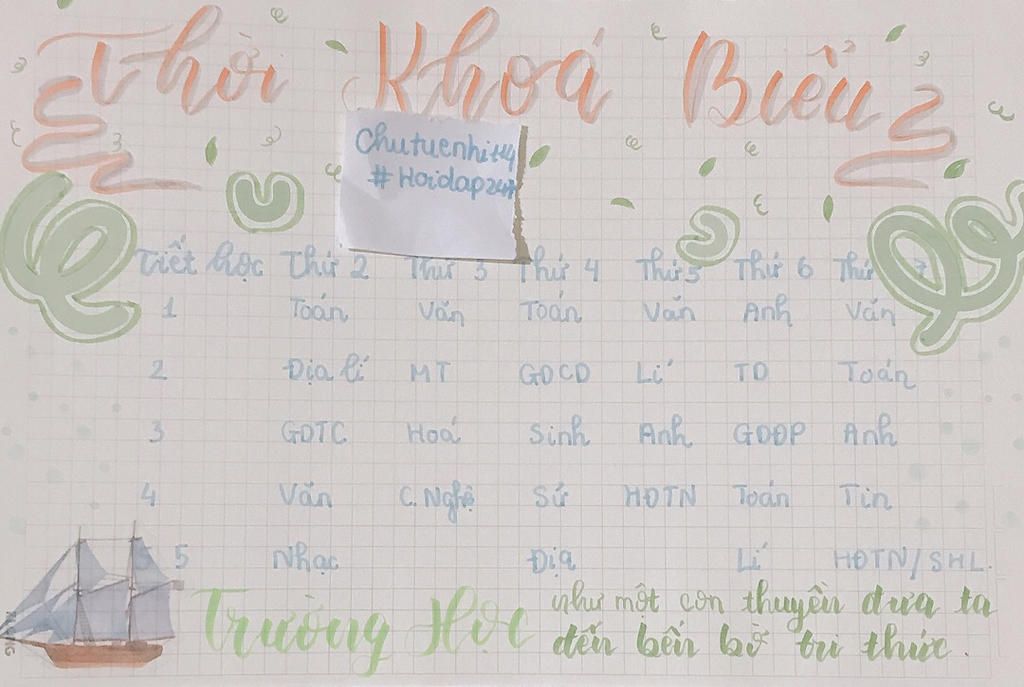 Thời Khoá Biểu
Chutuenhi
#Hoidap247
Tiết học Thứ 2 Thứ 3 Thứ 4 Thứ 5 Thứ 6 Thứ 7
1 Toán Văn Toán Văn Anh Văn
2 Địa lí MT GDCD Lí TD Toán
3 GDTC Hoá Sinh Anh GDĐP Anh
4 Văn C.Nghệ Sử HĐTN Toán Tin
5 Nhạc Địa Lí HĐTN/SHL.
Trường Học như một con thuyền đưa ta
đến bến bờ tri thức.